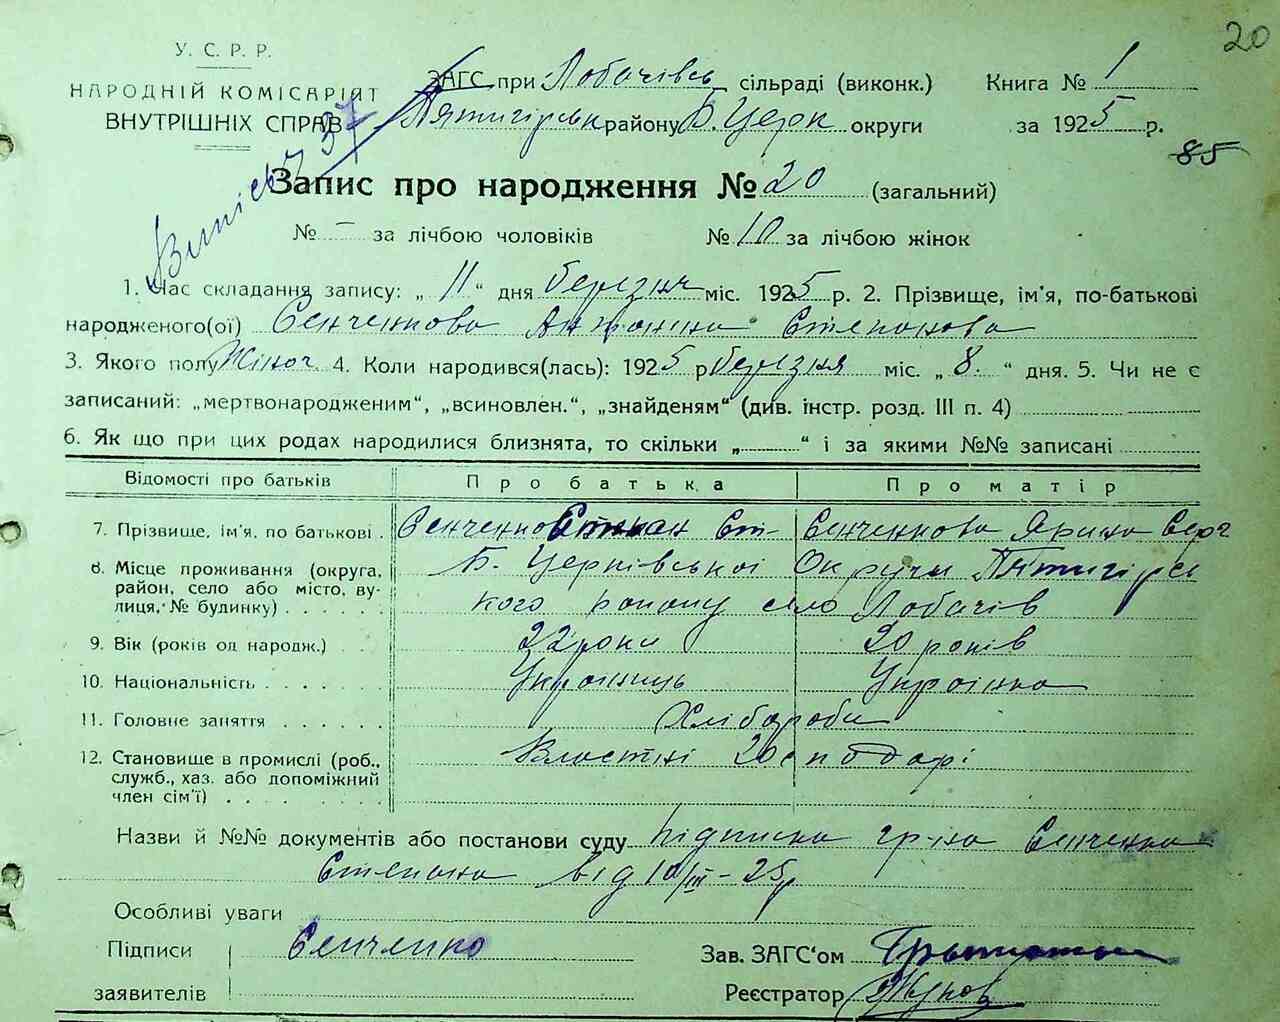 20
У. С. Р. Р.
НАРОДНІЙ КОМІСАРІЯТ
ВНУТРІШНІХ СПРАВ
ЗАГС при Лобачівсь сільраді (виконк.) Книга № 1
Пятигірськ району Б. Церк округи за 1925 р.
85
Запис про народження № 20 (загальний)
№ – за лічбою чоловіків № 10 за лічбою жінок
1. Час складання запису: „ 11 “ дня березня міс. 1925 р. 2. Прізвище, ім'я, по-батькові
народженого(ої) Сенченкова Антоніна Степанова
3. Якого полу Жіноч. 4. Коли народився(лась): 1925 р березня міс. „ 8. “ дня. 5. Чи не є
записаний: „мертвонародженим“, „всиновлен.“, „знайденям“ (див. інстр. розд. III п. 4)
6. Як що при цих родах народилися близнята, то скільки „ “ і за якими №№ записані
Відомості про батьків Про батька Про матір
7. Прізвище, ім'я, по батькові . Сенченко Степан Ст- Сенченкова Ярина Серг
8. Місце проживання (округа, Б. Церківської Округи Пятигірсь
район, село або місто, ву- кого району село Лобачів
лиця, № будинку) . . . . .
9. Вік (років од народж.) . . 22 роки 20 років
10. Національність . . . . . . Українець Українка
11. Головне заняття . . . . . Хлібороби
12. Становище в промислі (роб., Властні господарі
служб., хаз. або допоміжний
член сім'ї) . . . . . . .
Назви й №№ документів або постанови суду підписка гр-на Сенченка
Степана від 10/III-25р
Особливі уваги
Підписи Сенченко Зав. ЗАГС'ом
заявителів Реєстратор